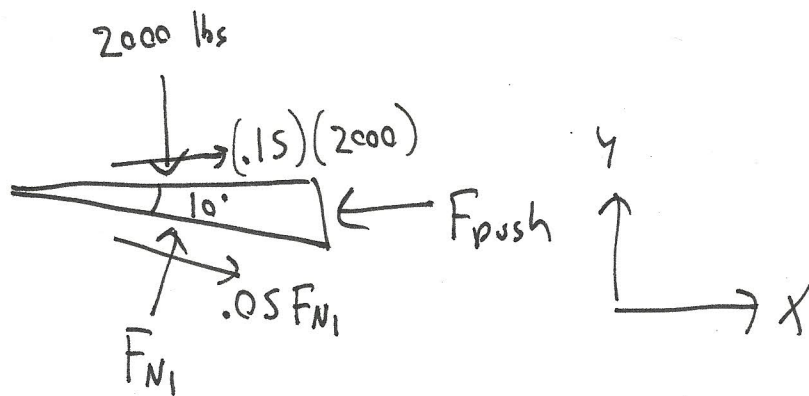 2000 lbs
(.15)(2000)
10°
Fpush
.05 FN1
FN1
Y
X